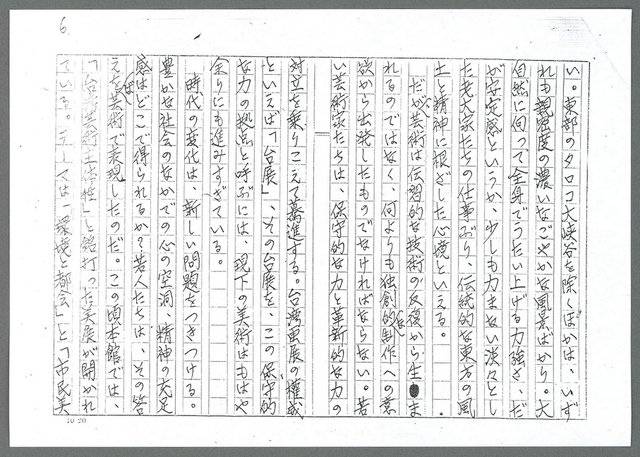 6
い。東部のタロコ大峡谷を除くほかは、いず
れも親密度の濃いなごやかな風景ばかり。大
自然に向って全身でうたい上げる力強さ、だ
が安定感というか、少しも力まない淡々とし
た老大家たちの仕事ぶり、伝統的な東方の風
土と精神に根ざした心境といえる。
だが、芸術は伝習的な技術の反復から生ま
れるのではなく、何よりも独創的な制作への意
欲から出発したものでなければならない。若
い芸術家たちは、保守的な力と革新的な力の
対立を乗りこえて驀進する。台湾画展の権威
といえば「台展」、その台展を、この保守的
な力の拠点と呼ぶには、現下の美術はもはや
余りにも進みすぎている。
時代の変化は、新しい問題をつきつける。
豊かな社会のなかでの心の空洞、精神の充足
感はどこで得られるか？若人たちは、その答
えを芸術で表現したのだ。この頃本館では、
「台湾芸術主体性」と銘打った美展が開かれ
ている。テーマは「環境と都会」と「市民美
10 20